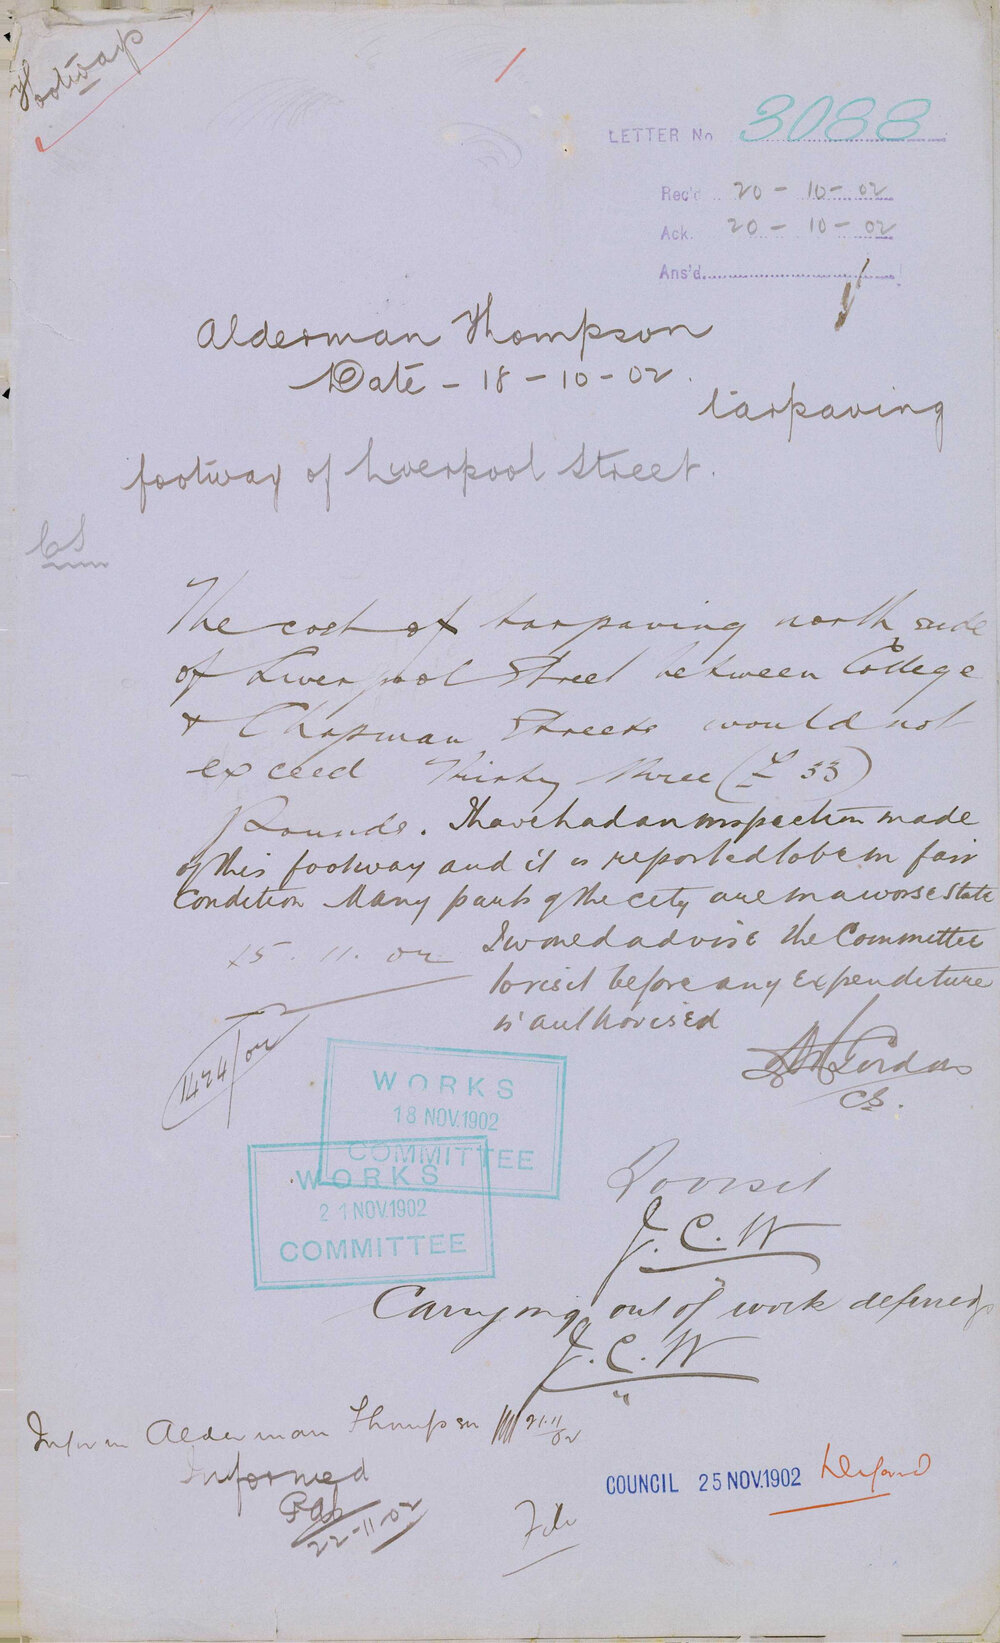 Footway
LETTER No 3088
Rec'd 20 - 10 - 02
Ack. 20 - 10 - 02
Ans'd
Alderman Thompson
Date - 18 - 10 - 02.
tarpaving
footway of Liverpool Street.
CS
The cost of tarpaving north side
of Liverpool Street between College
& Chapman Streets would not
exceed Thirty three (£ 33)
Pounds. I have had an inspection made
of this footway and it is reported to be in fair
condition Many parts of the city are in a worse state
15. 11. 02
I would advise the Committee
to visit before any expenditure
is authorised
1424/02
Gordon
CS.
WORKS
18 NOV. 1902
COMMITTEE
WORKS
21 NOV. 1902
COMMITTEE
To visit
J. C. W
Carrying out of work deferred
J. C. W
Inform Alderman Thompson 21.11/02
Informed
22-11-02
COUNCIL 25 NOV. 1902 Deferred
File